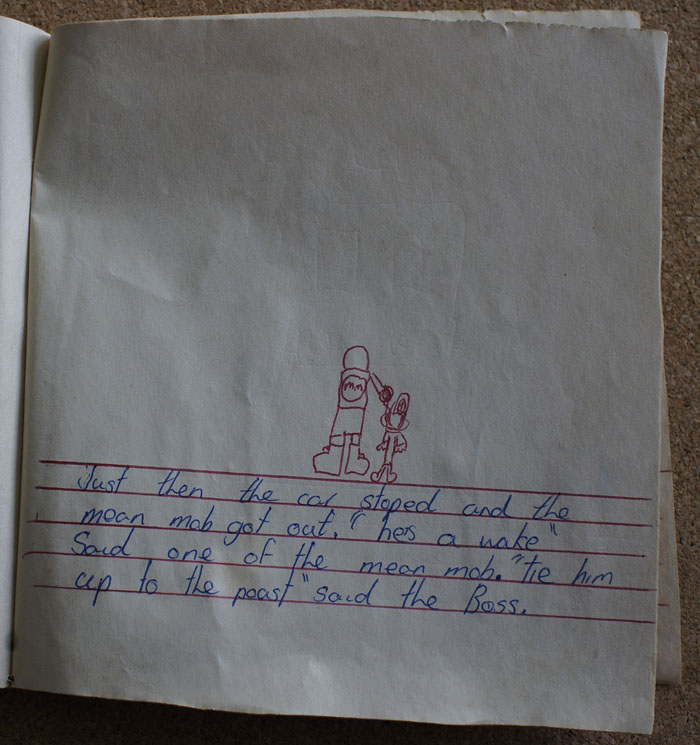 mm
Just then the car stoped and the
mean mob got out. "hes a wake"
Said one of the mean mob. "tie him
up to the poast" said the Boss.